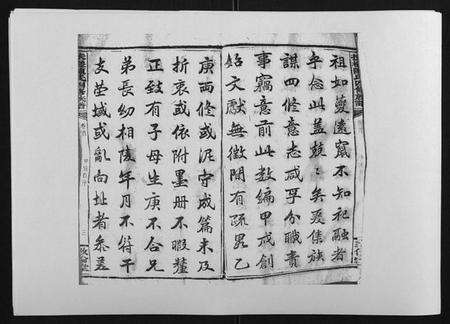 祖如燮遠竄不知祀融者
乎念此益鼓鼓矣爰集族
謀四修意志咸孚分職責
事竊意前此数編甲戌創
始文獻無徵間有疏畧乙
庚两修或泥守成篇未及
折衷或依附墨册不暇釐
正致有子母生庚不合兄
弟長幼相陵年月不符干
支塋域或亂向址者叅差